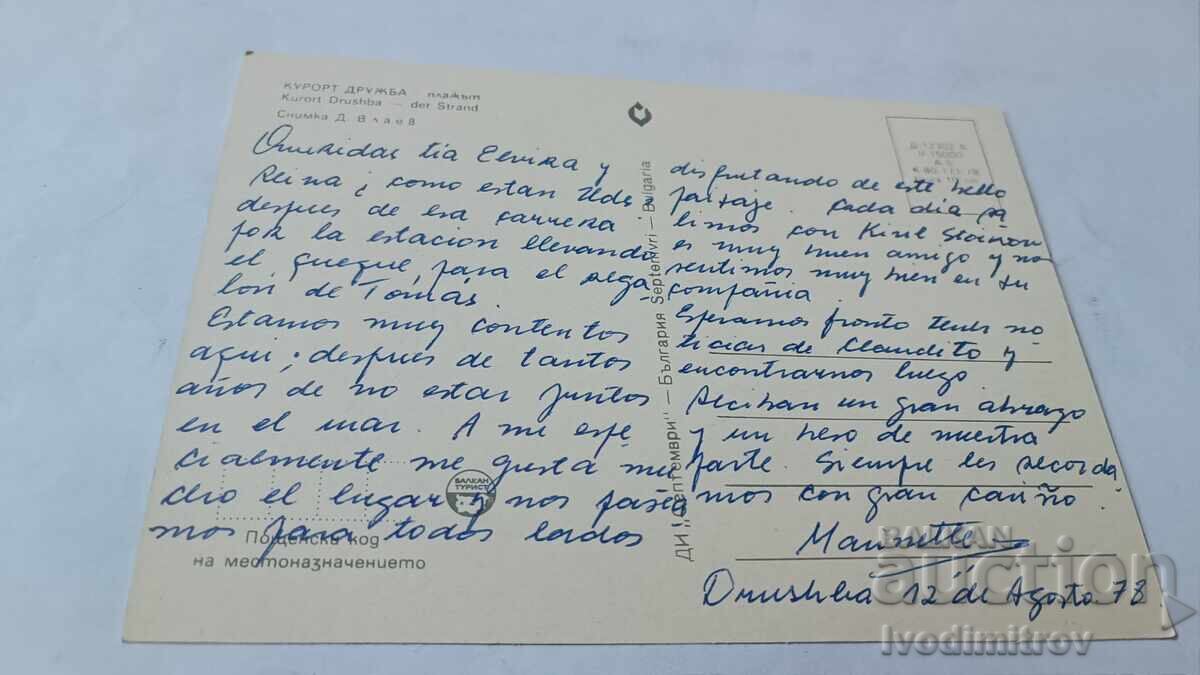 КУРОРТ ДРУЖБА плажът
Kurort Drushba — der Strand
Снимка Д. Влаев
Queridas tia Elvira y
Reina ¿ como estan Uds.?
despues de esa carrera
por la estacion llevando
el queque, para el rega-
lon de Tomás.
Estamos muy contentos
aqui; despues de tantos
años de no estar juntos
en el mar. A mi espe
cialmente me gusta mu
cho el lugar y nos pasea
mos para todos lados
БАЛКАН
ТУРИСТ
Пощенски код
на местоназначението
ДИ „Септември" — България Septemvri — Bulgaria
disfrutando de este bello
paisaje. Cada dia sa
limos con Kiril Stoinov
es muy buen amigo y nos
sentimos muy bien en su
compañia.
Esperamos pronto tener no
ticias de Claudito y
encontrarnos luego
Reciban un gran abrazo
y un beso de nuestra
parte. Siempre les recorda
mos con gran cariño
Drushba 12 de Agosto 78
BALKAN
auction
Ivodimitrov